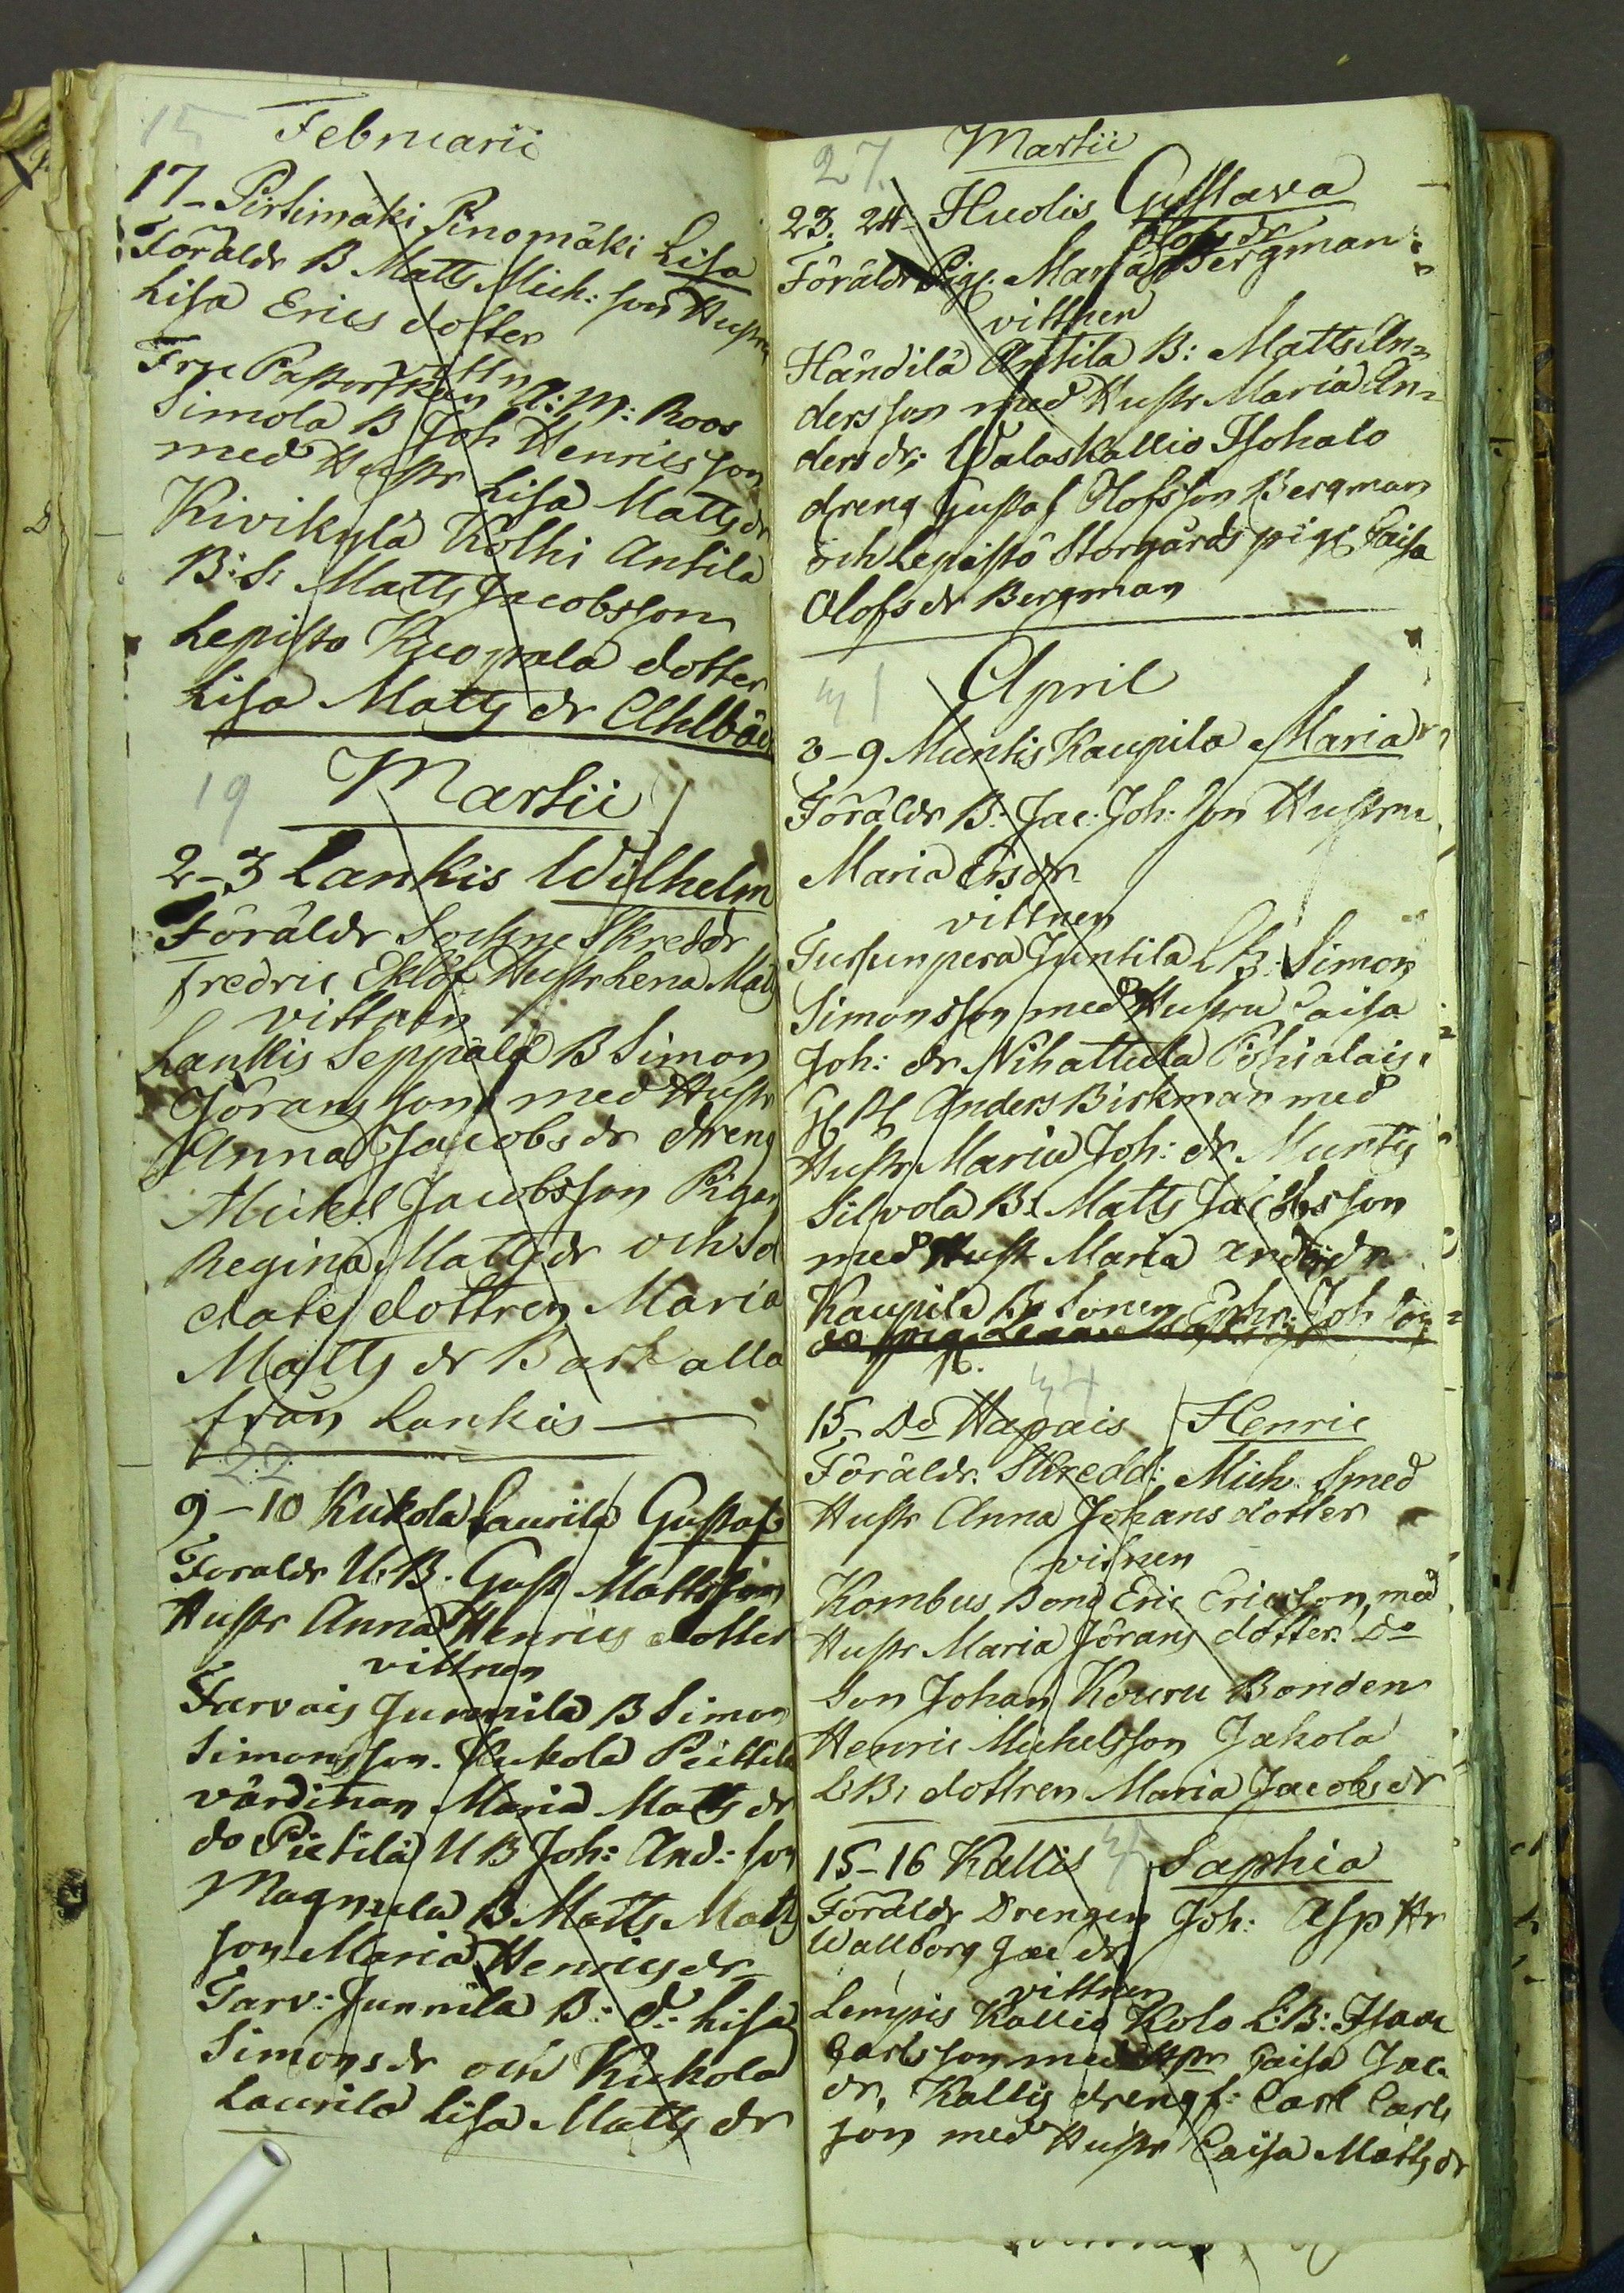 15
Februarii
17- Pirtimäki Pinomäki Lisa
Föräldr B Matts Mich: son Hustru
Lisa Erics dotter
vittn
Fru Pastorskan A: M: Roos
Simola B Joh Henricsson
med Hustr Lisa Mattsdr
Kivikylä Kölhi Antila
B: S: Matts Jacobsson
Lepistö Kuopala dotter
Lisa Matts dr Ahlbäck
19
Martii
2-3 Lankis Wilhelm
Föräldr Sockne Skreddr
Fredric Eklöf Hustr Lena Matts
vittnen
Lankis Seppälä B Simon
Jörans son med Hustr
Anna Jacobs dr dreng
Mickel Jacobsson Pigan
Regina Matts dr och sol
dates dottren Maria
Matts dr Bark alla
från Lankis
22
9-10 Kukola Laurila Gustaf
Foraldr U: B. Gust Mattsson
Hustr Anna Henrics dotter
vittnen
Tarvais Junnila B Simon
Simonsson. Kukola Piettilä
värdinnan Maria Matts dr
do Pietilä U B Joh: And: son
Magnula B Matts Matts
son Maria Henrics dr
Tarv: Junnila B: d: Lisa
Simons dr och Kukola
Laurila Lisa Matts dr
27.
Martii
23. 24- Huolis Gustava
Olofs dr
Föräldr Pig. Maria Bergman
vittnen
Händilä Antila B: Matts An=
ders son med Hustr Maria An=
ders dr; Walaskallio Isohalo
dreng Gustaf Olofsson Bergman
och Lepistö Storgårds pig: Caisa
Olofs dr Bergman
April
3-9 Muntis Kaupila Maria
Föräldr B: Jac: Joh: son Hustru
Maria Ersdr
vittnen
Tursunpera Juntila L B: Simon
Simonsson med Hustru Caisa
Joh: dr Nihattula Pohialais
Anders Birkman med
Hustr Maria Joh: dr Muntis
Silvola B: Matts Jacobsson
med Hustr Maria Anders dr
Kaupila B: Sonen Ephr: Joh son
15- Do Hapais Henric
Föräldr. Skredd: Mich: Smed
Hustr Anna Johans dotter
vitnen
Kombus Bond Eric Ericsson, med
Hustr Maria Jörans dotter. Do
Son Johan Kouru Bonden
Henric Michelsson Jakola
L: B: dottren Maria Jacobs dr
15-16 Kallis Saphia
Föräldr Drengen Joh: Asp Hr
Wallborg Jac dr
vittnen
Lempis Kallio Kolo L: B: Isaac
Carlsson med Hustr Caisa Jac.
dr, Kallis dreng f: Carl Carls
son med Hustr Caisa Matts dr